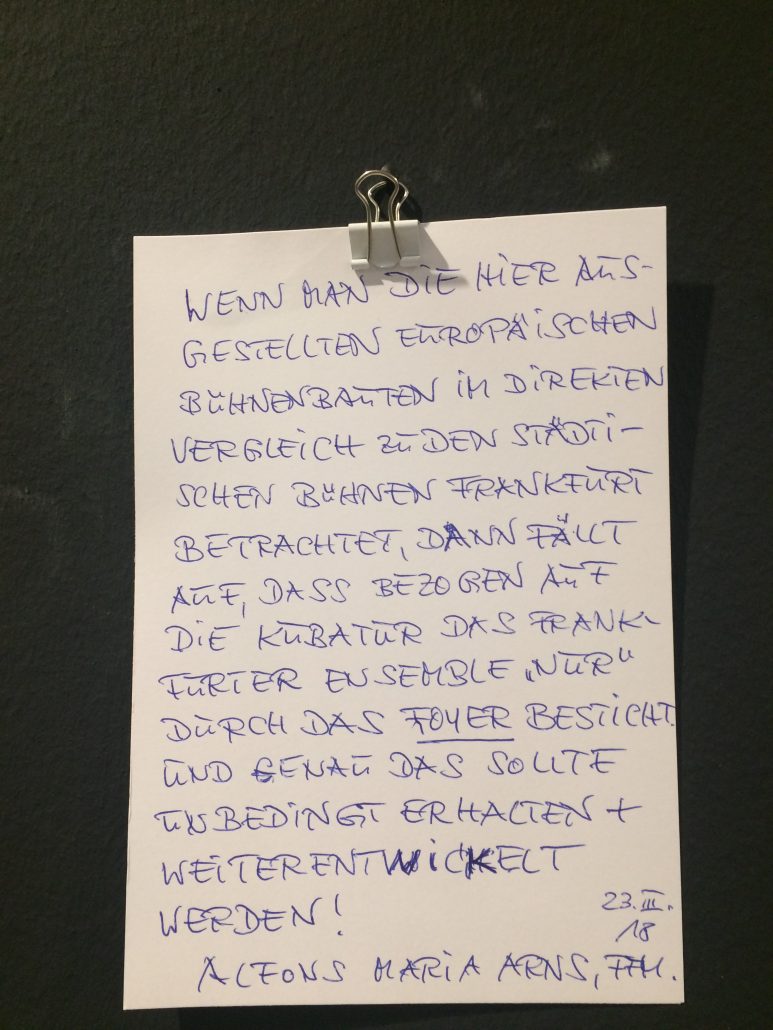 WENN MAN DIE HIER AUS-
GESTELLTEN EUROPÄISCHEN
BÜHNENBAUTEN IM DIREKTEN
VERGLEICH ZU DEN STÄDTI-
SCHEN BÜHNEN FRANKFURT
BETRACHTET, DANN FÄLLT
AUF, DASS BEZOGEN AUF
DIE KUBATUR DAS FRANK-
FURTER ENSEMBLE „NUR“
DURCH DAS FOYER BESTICHT.
UND GENAU DAS SOLLTE
UNBEDINGT ERHALTEN +
WEITERENTWICKELT
WERDEN!
23.III.
18
ALFONS MARIA ARNS, FFM.